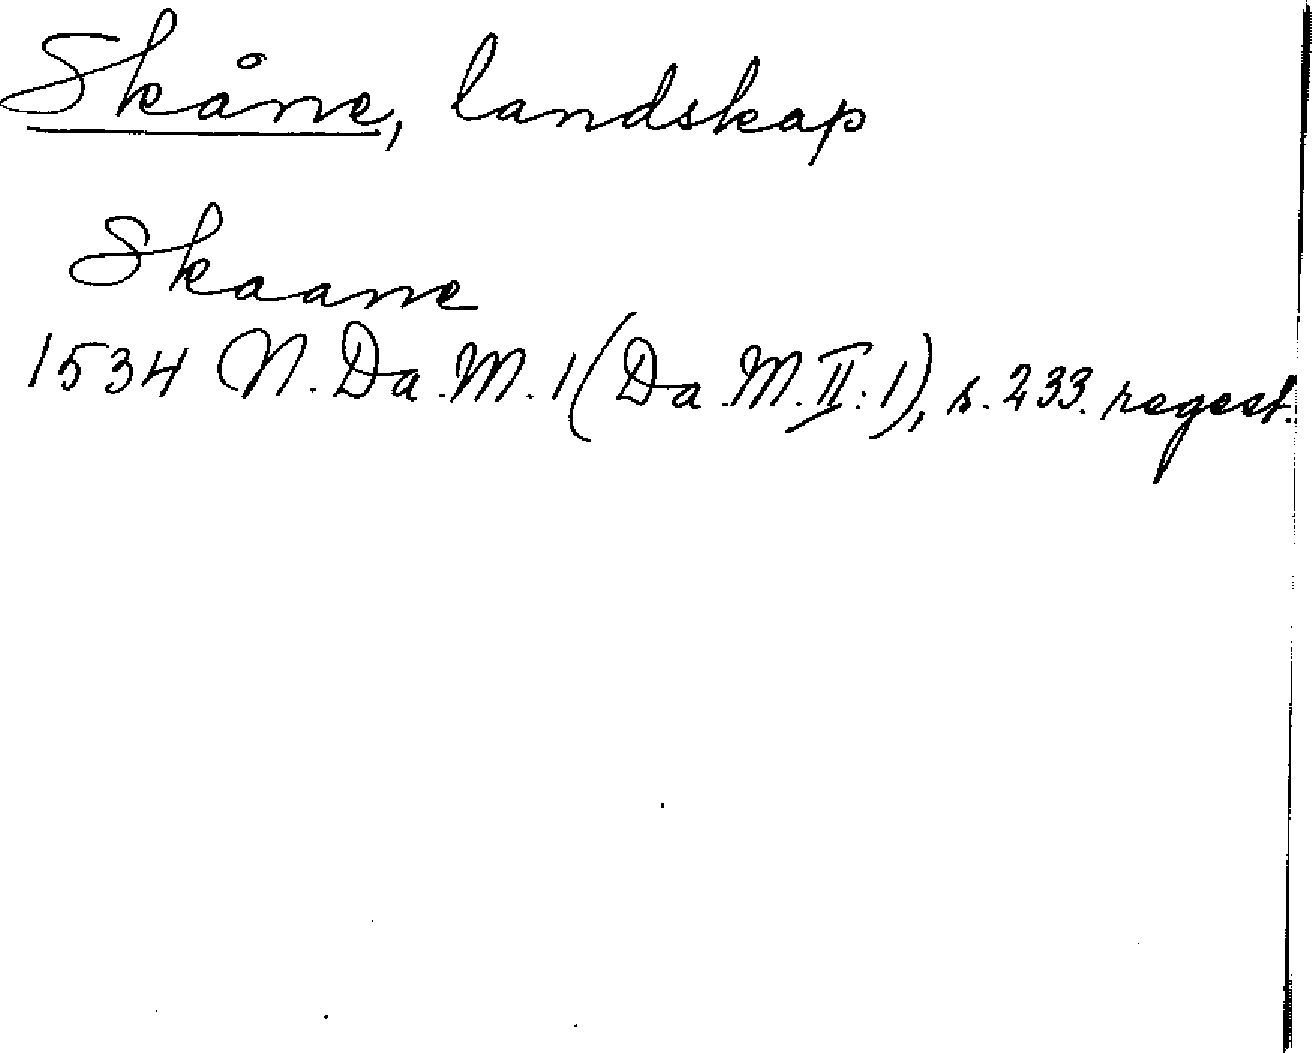 Skåne, landskap
Skaane
1534 N. Da. M. 1 (Da. M. II: 1), s. 233. regest.